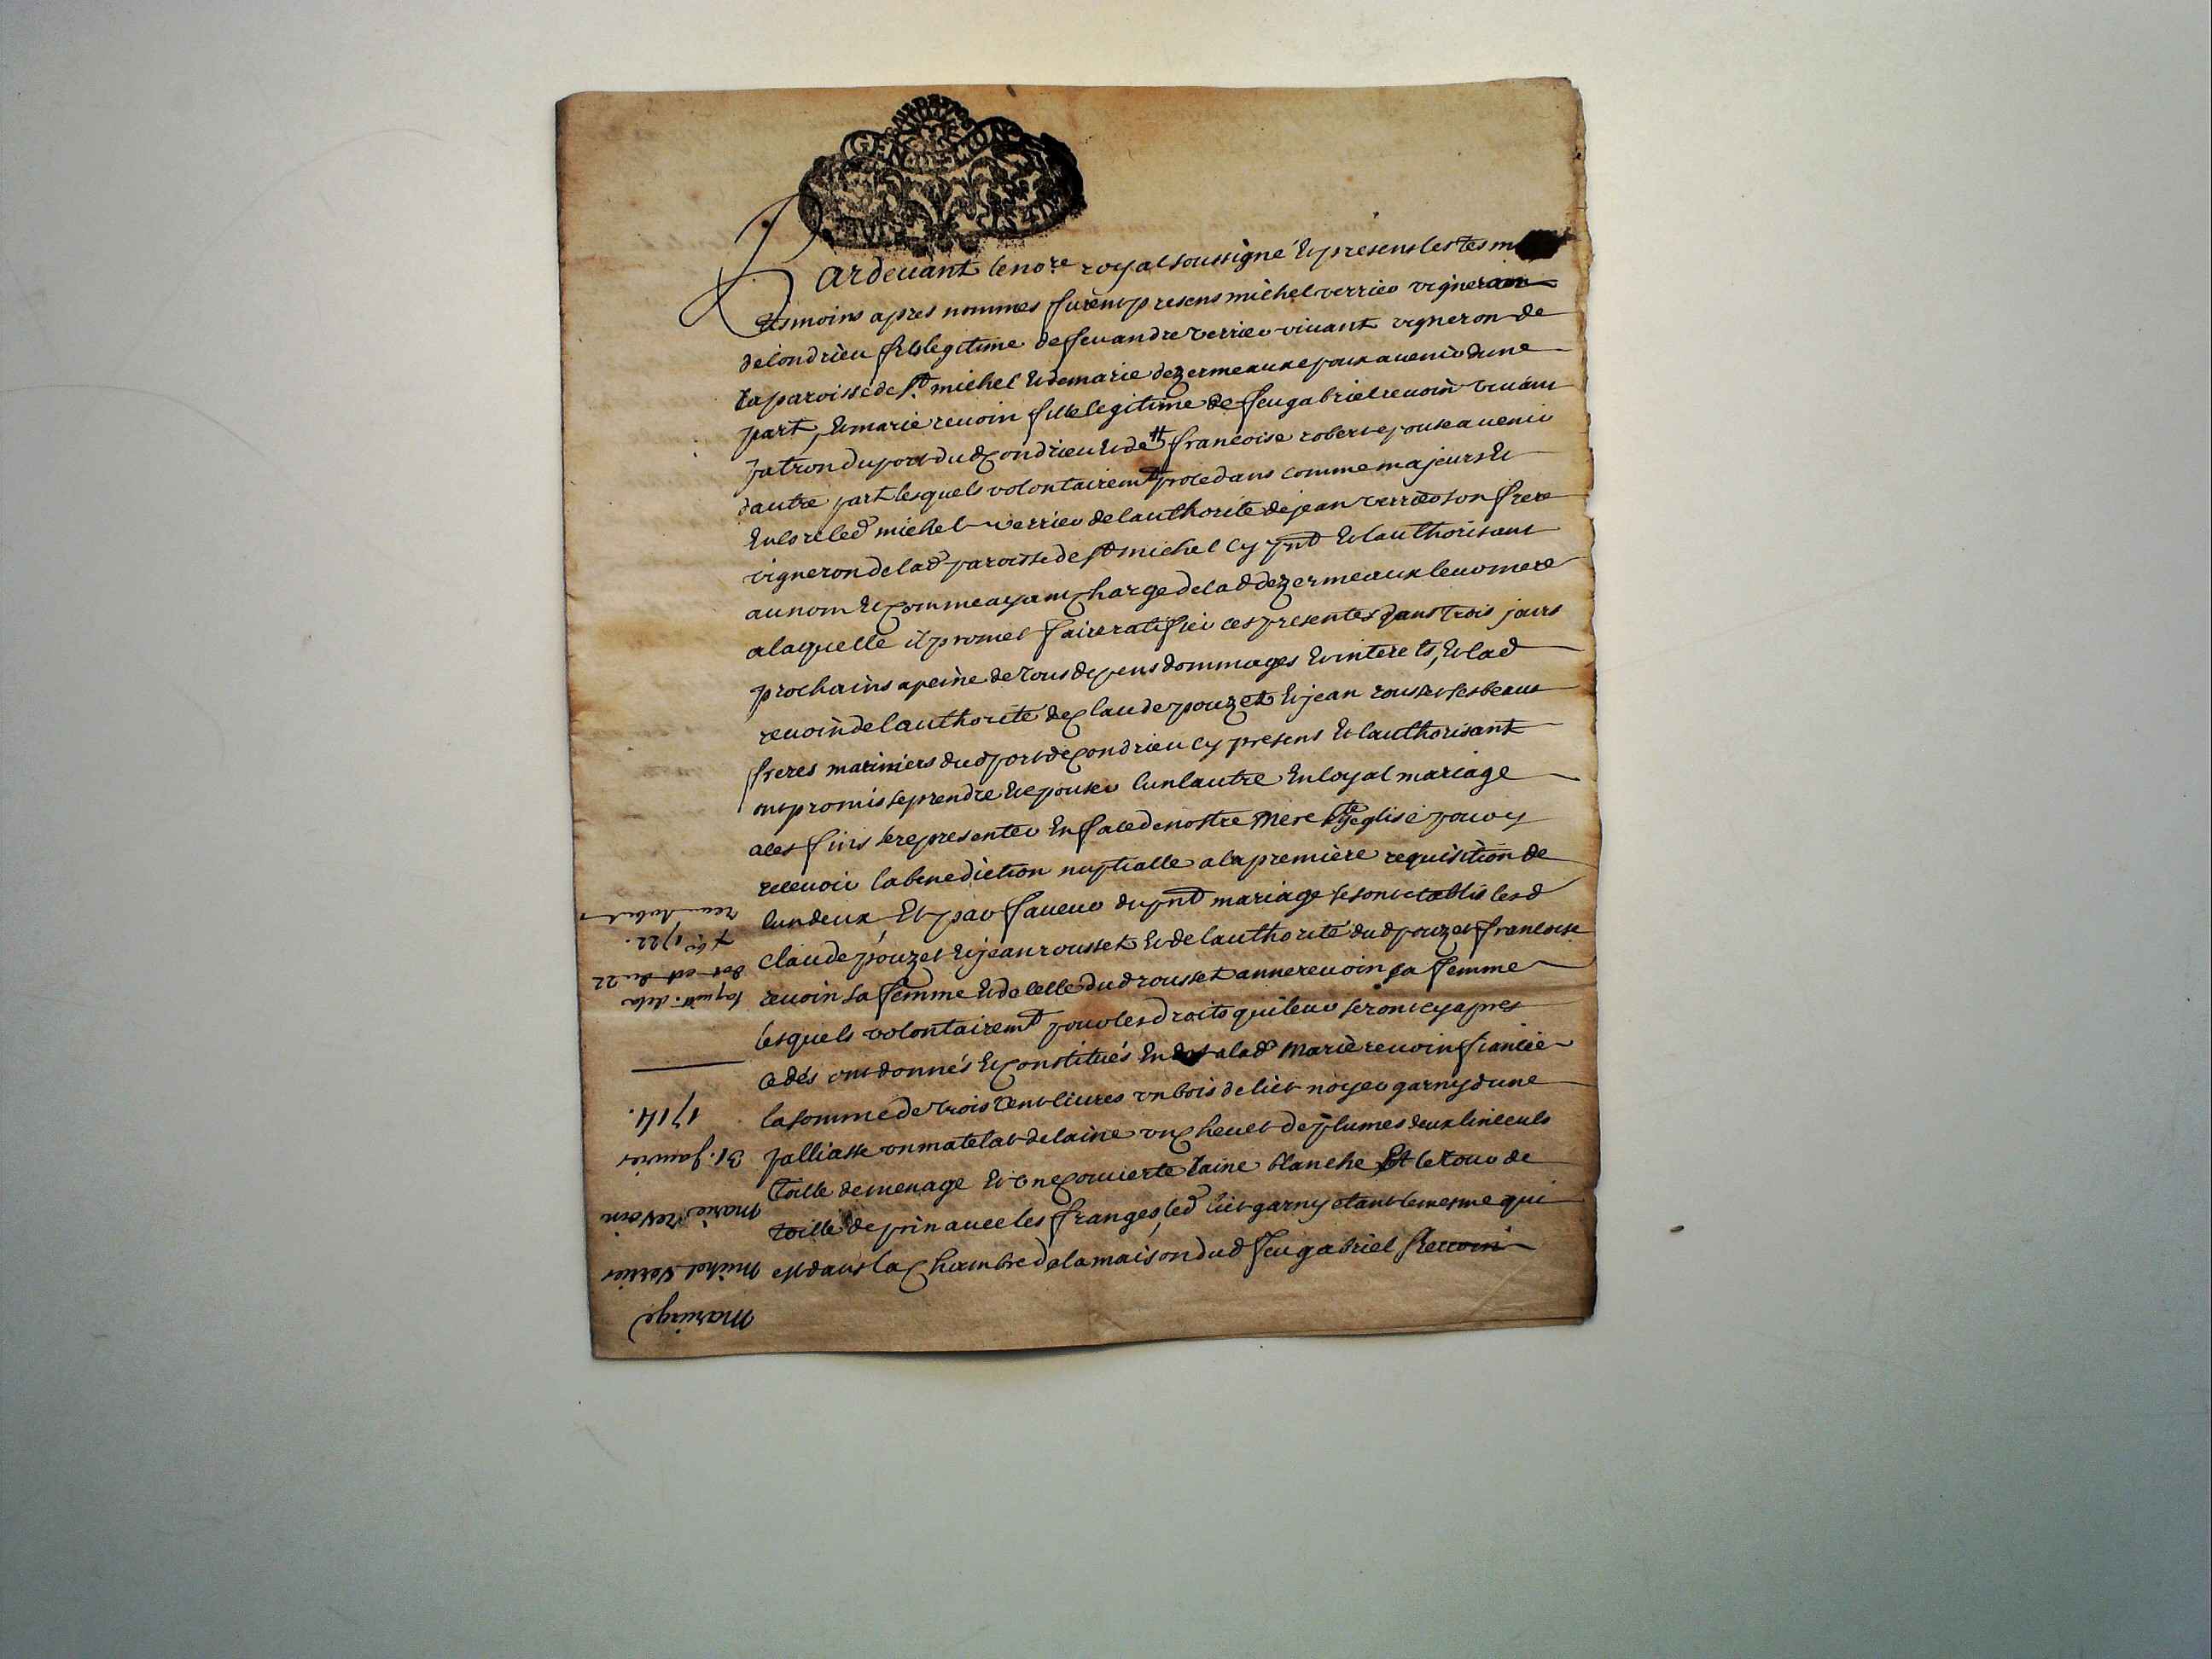 Pardevant le no.re royal soussigné & presens les tesm
tesmoins apres nommes furent presens michel verrier vigneron
de Condrieu fils legitime de feu andre verrier vivant vigneron de
la paroisse de St. michel & de marie dezermeaux epoux a venir dune
part, & marie revoin fille legitime de feu gabriel revoin vivant
patron du port dud Condrieu & de francoise robert epouse a venir
dautre part lesquels volontairemt procedans comme majeurs &
encore led michel verrier de lauthorité de jean verrier son frere
vigneron de lad paroisse de St michel cy pnt & lauthorisant
au nom & comme ayant charge de lad dezermeaux leur mere
a laquelle il promet faire ratifier ces presentes dans trois jours
prochains a peine de tous depens dommages & interets, & lad
revoin de lauthorité de Claude pouzet & jean rousset ses beaux
freres mariniers dud port de Condrieu cy presens & lauthorisant
ont promis se prendre & epouser lun lautre en loyal mariage
a ces fins se representer en face de nostre mere ste eglise pour y
recevoir la benediction nuptialle a la premiere requisition de
lun deux, & par faveur du pnt mariage se sont etablis lesd
claude pouzet & jean rousset & de lauthorité dud pouzet francoise
revoin sa femme & de celle dud rousset anne revoin sa femme
lesquels volontairemt pour les droits qui leur seront cy apres
cedés ont donnés & constitués en dot a lad marie revoin fiancée
la somme de trois cent livres un bois de lict noyer garny dune
palliasse un matelat de laine un chevet de plumes deux linceuls
toille de menage & une couverte laine blanche et le tour de
toille de prin avec les franges, led lict garny etant le mesme qui
est dans la chambre de la maison dud feu gabriel Revoin
Mariage
Michel Verrier
Marie Revoin
31. Janvier
1714.
la quitt. de la
dot est du 22
1722.